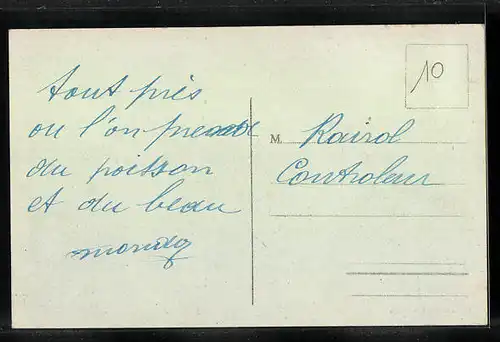 tout près
ou l'on prend
du poisson
et du beau
10
M. Rairol
Controleur